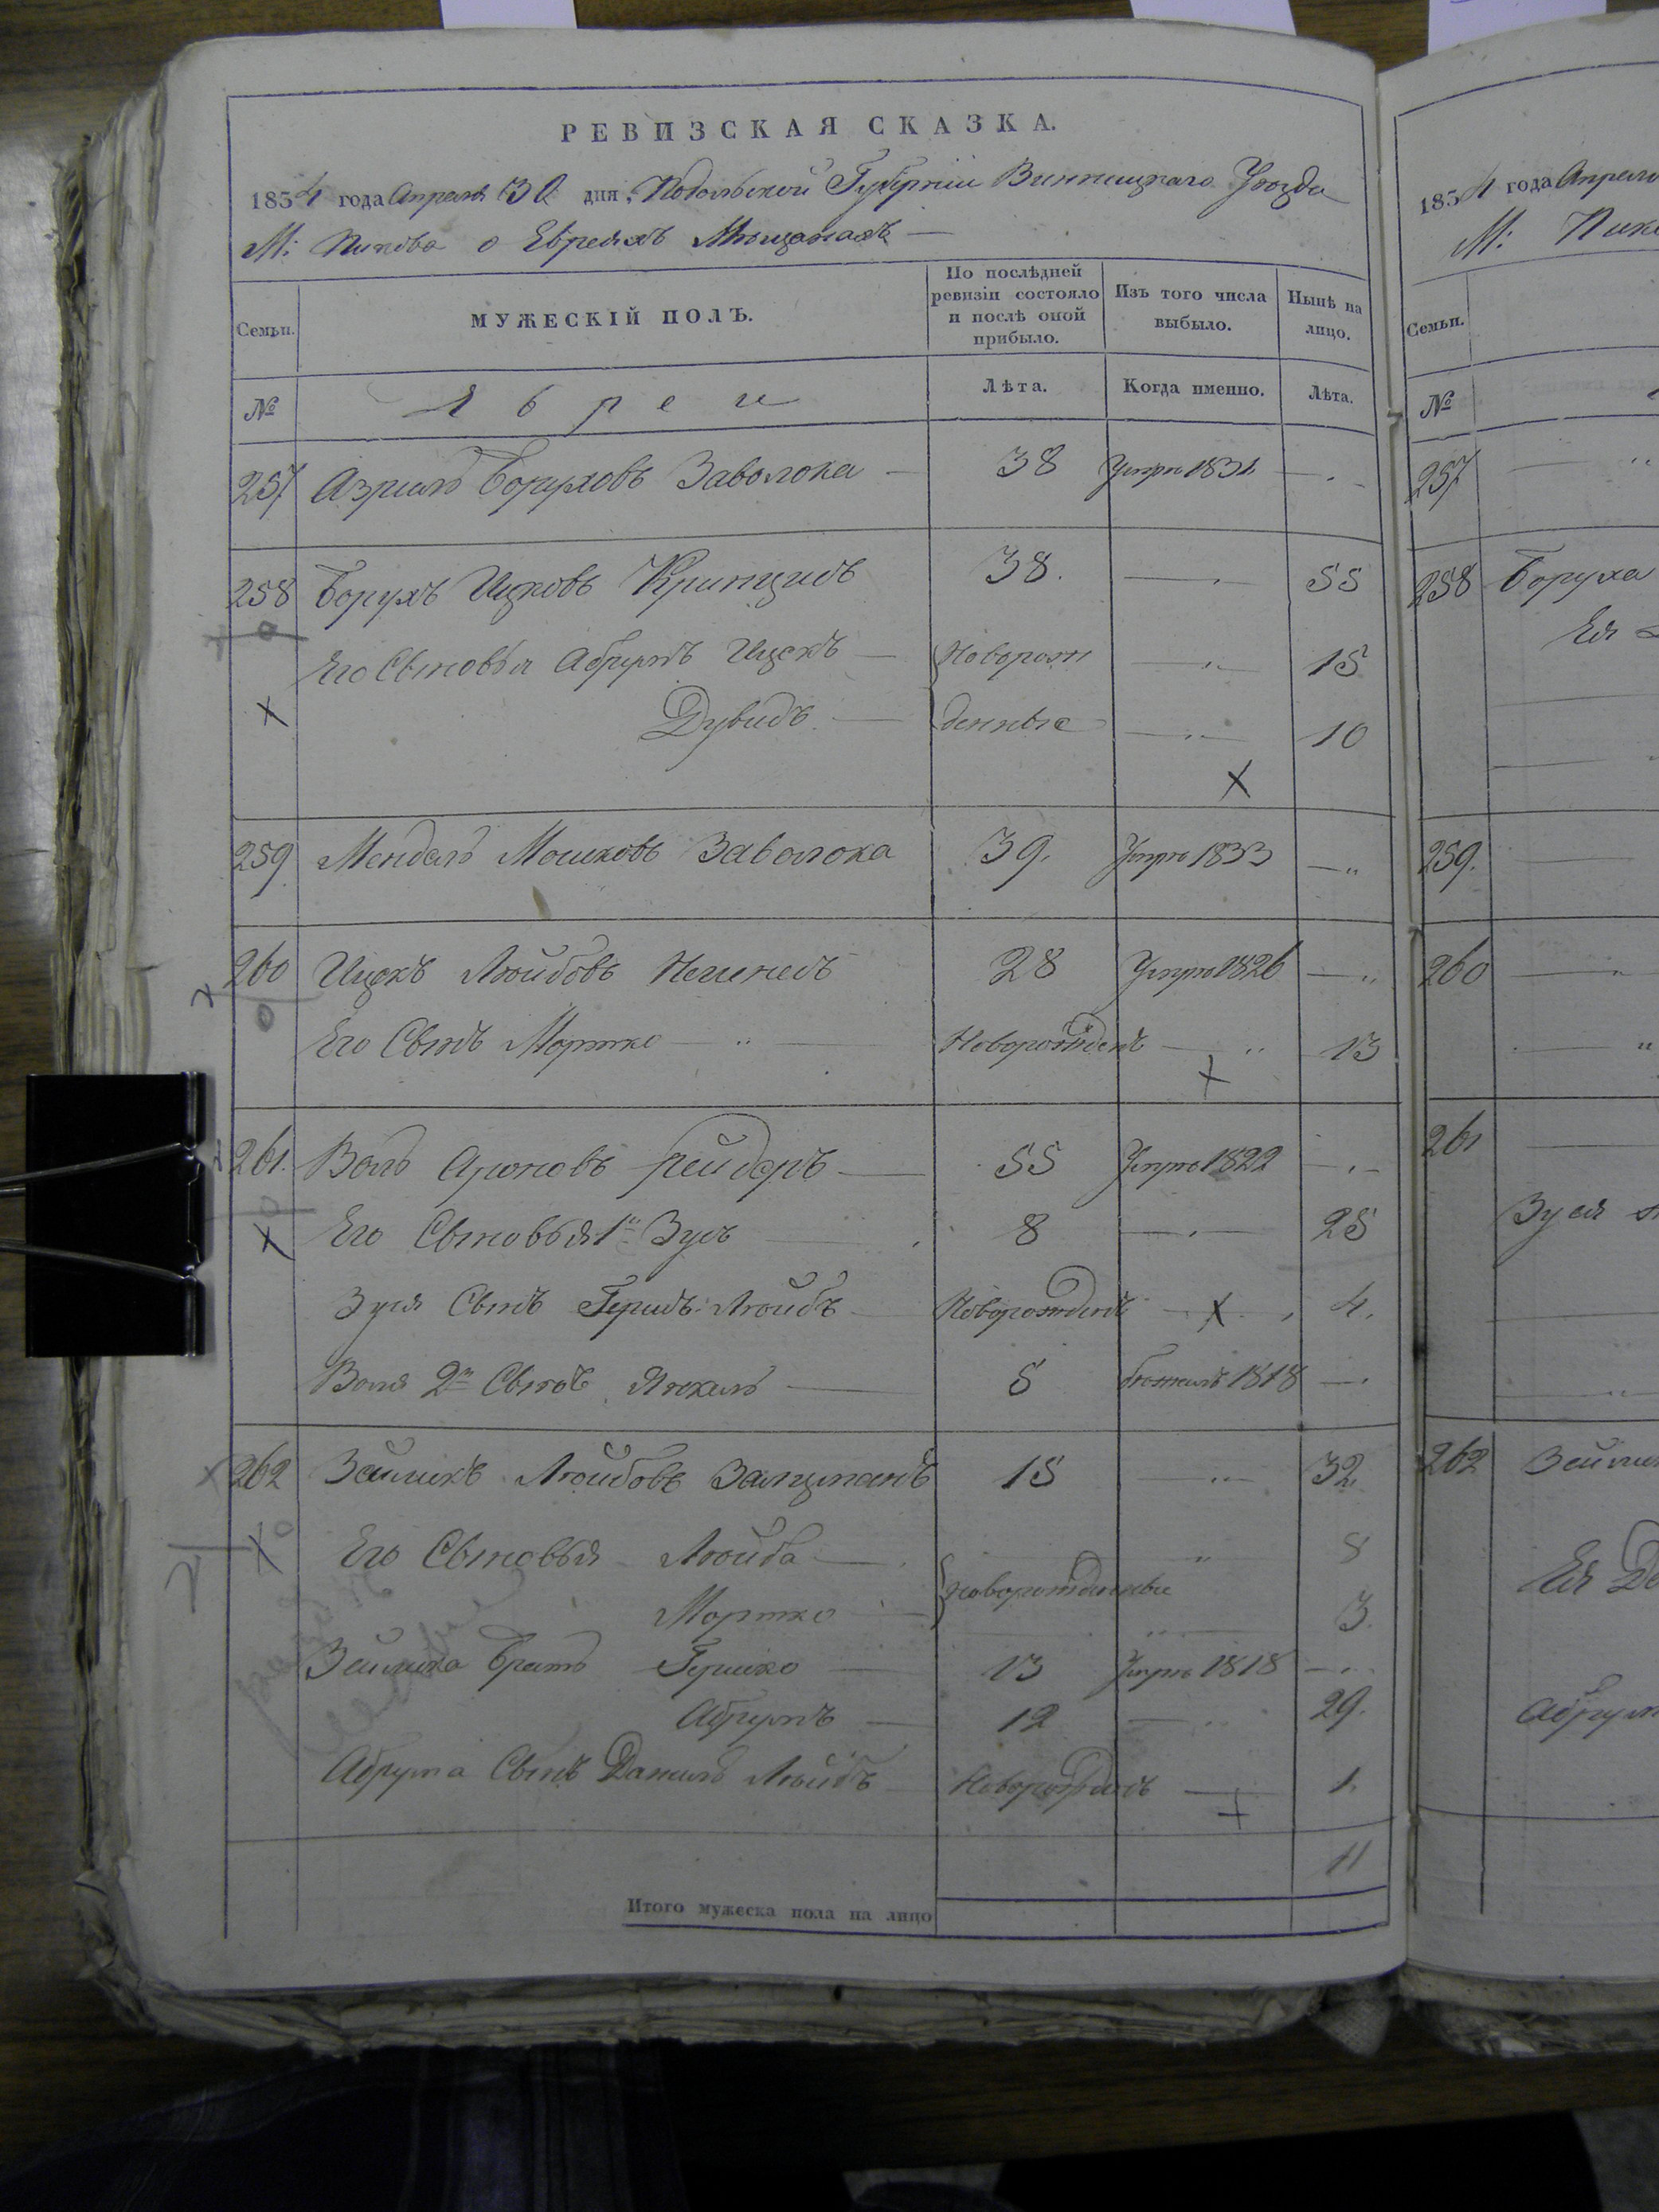 РЕВИЗСКАЯ СКАЗКА.
1834 года Апреля 30 дня, Подольской Губерніи Винницкаго Уѣзда
М: Пикова о Евреяхъ Мѣщанахъ —
Семьи. МУЖЕСКІЙ ПОЛЪ. По послѣдней ревизіи состояло и послѣ оной прибыло. Изъ того числа выбыло. Нынѣ на лицо.
№ Лѣта. Когда именно. Лѣта.
257 Азриль Боруховъ Заволока — 38 Умре 1831 —
258 Борухъ Ицковъ 38. — 55
Его Сыновья Абрумъ Ицекъ — Новорож — 15
Дувидъ — денные — 10
259 Мендель Мошковъ Заволока 39. Умре 1833 — „
260 Ицекъ Лейбовъ 28 Умре 1826 — „
Его Сынъ Мортко „ — Новорожденъ — „ 13
261. Воль Ароновъ — 55 Умре 1822 —
Его Сыновья 1й Зусь — 8 — 25
Зуся Сынъ Гершъ Лейбъ Новорожденъ 4.
Воля 2й Сынъ Янкель — 5 бѣжалъ 1818 —
262 Зейликъ Лейбовъ Зальцманъ 15 — 32
Его Сыновья Лейба — „ 5
Мортко — Новорожденные „ 3
Зейлика братъ Гершко — 13 Умре 1818 —
Абрумъ — 12 — 29.
Абрума Сынъ Данель Лейбъ Новорожденъ — 1.
11
Итого мужеска пола на лицо
1834 года Апреля
М:
Семьи.
№
257
258 Боруха
Ея
259.
260
261
Зуся
262
Ея
Абрум